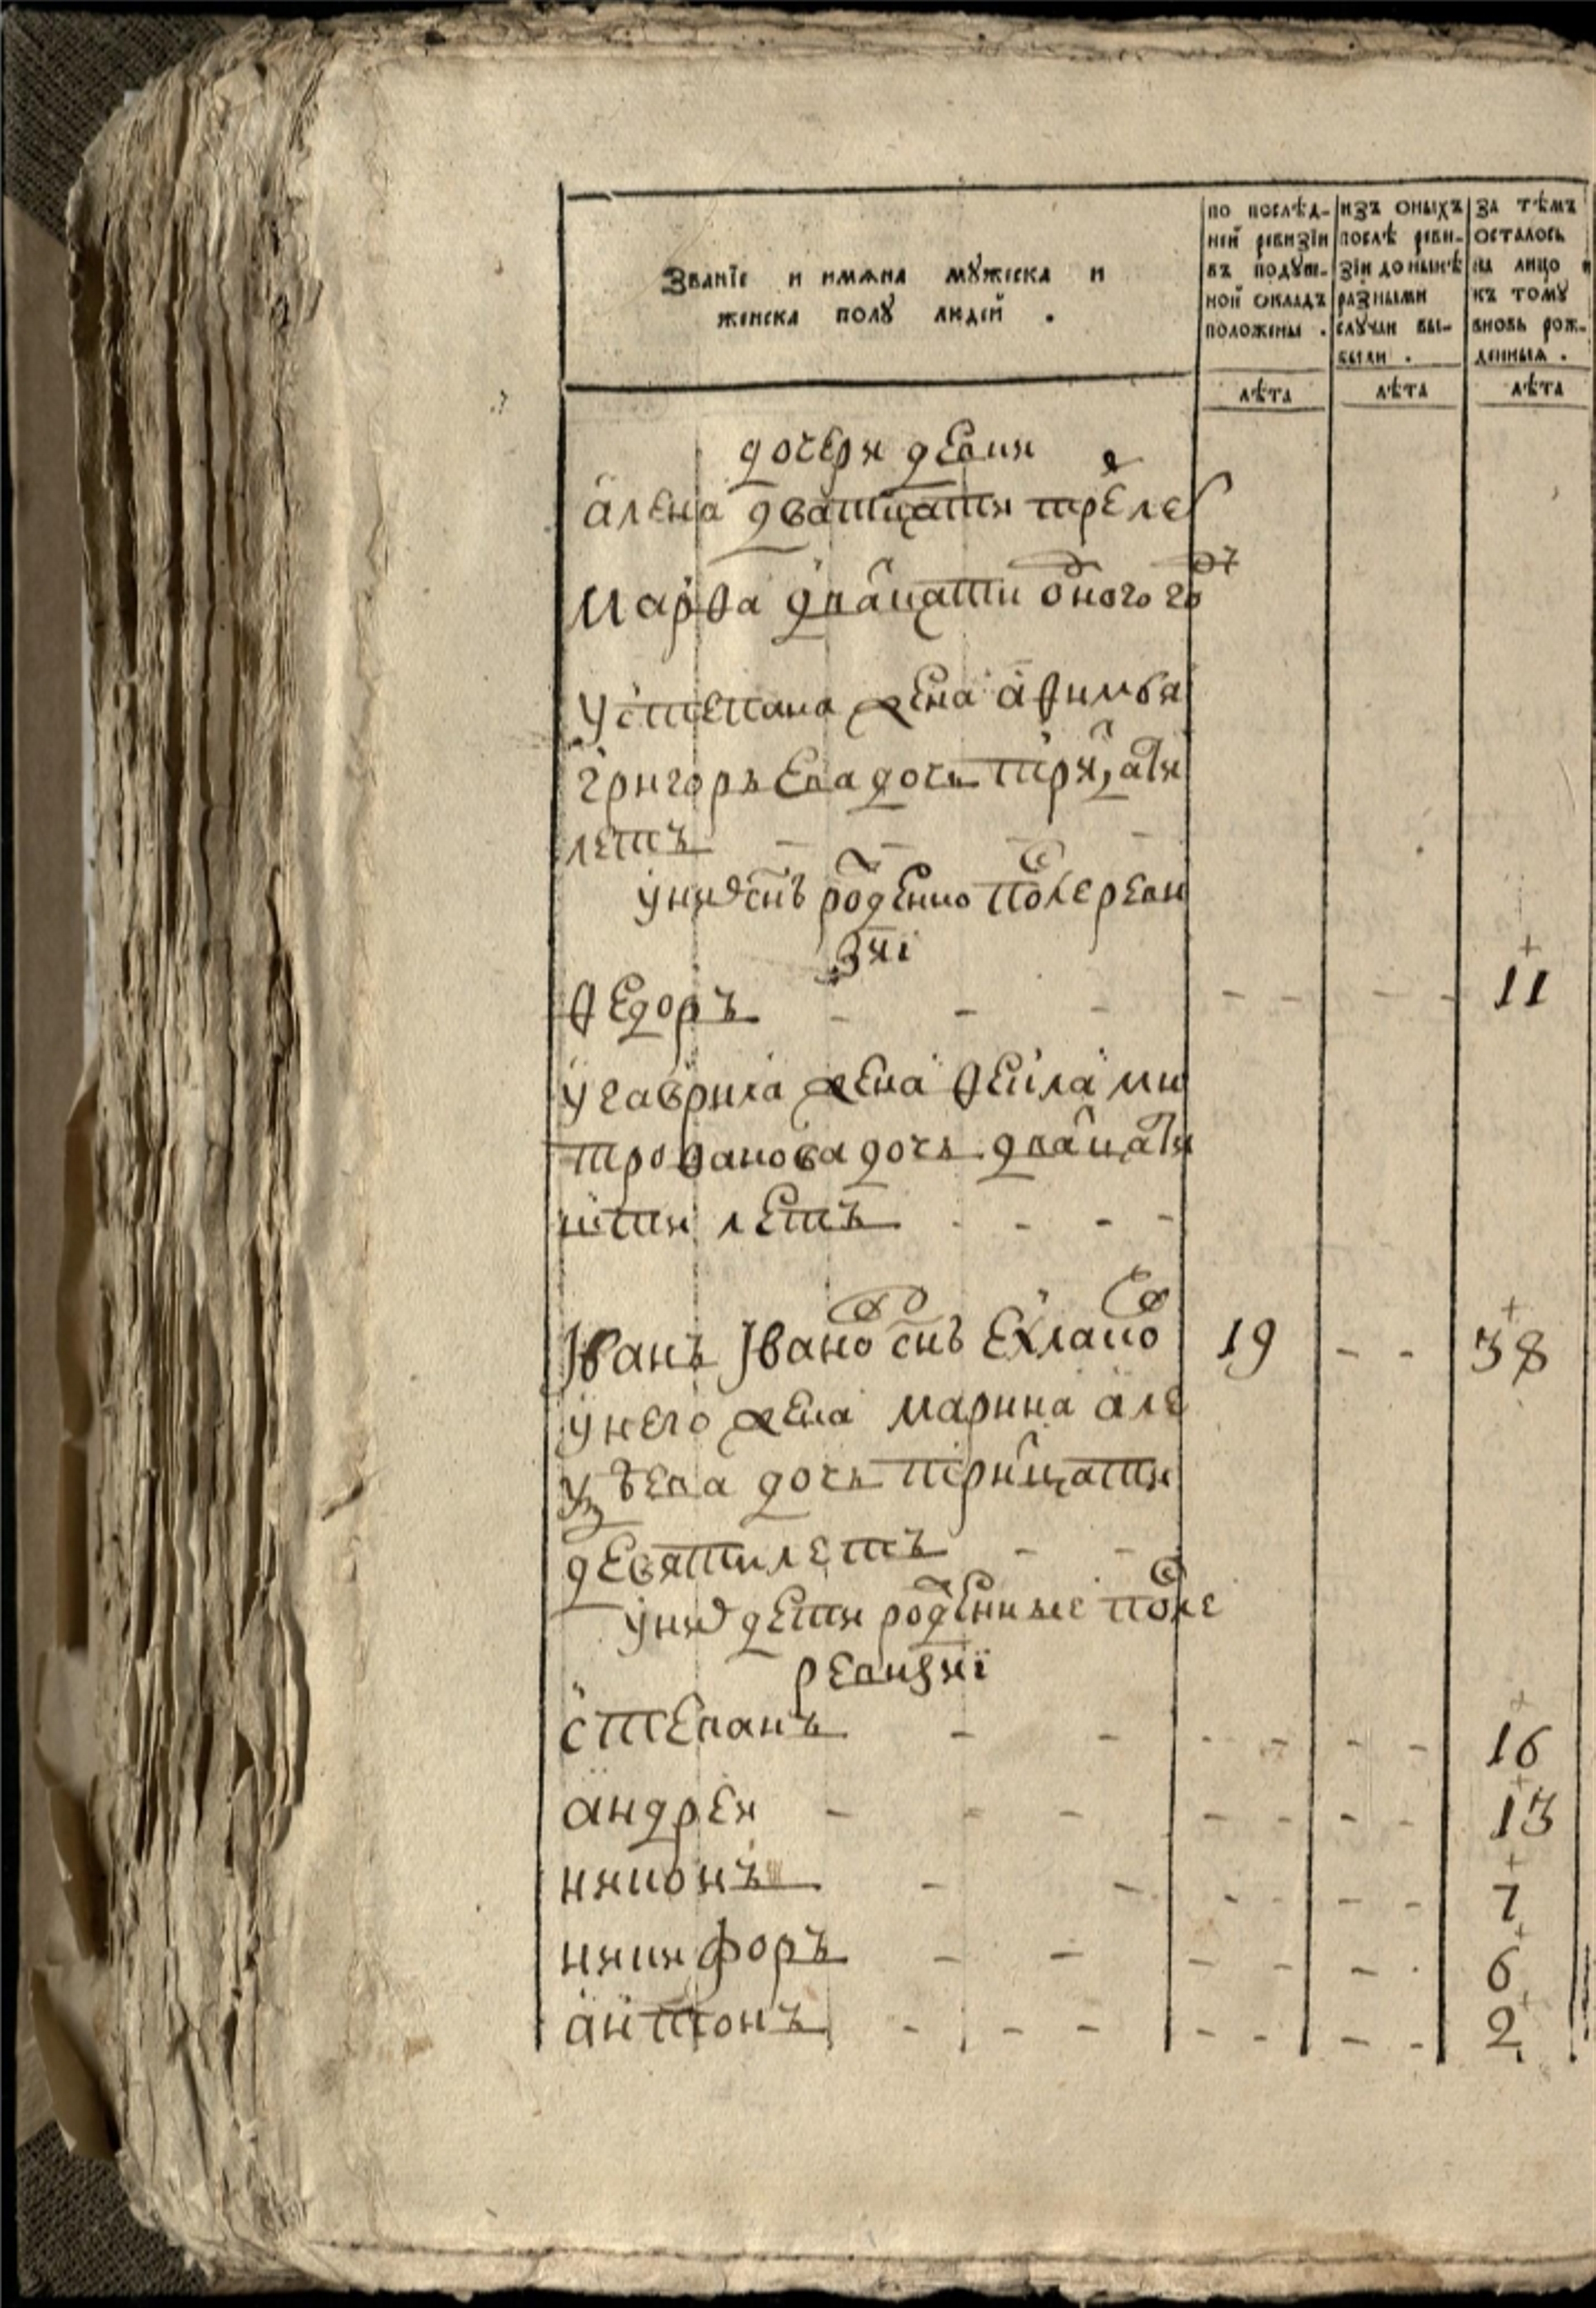 Званїе и имѧна мꙋжеска и
женска полꙋ людей .
по послѣд-
ней ревизїи
въ подꙋш-
ной окладъ
положены .
изъ оныхъ
послѣ реви-
зїи до нынѣ
разными
слꙋчаи вы-
были .
за тѣмъ
осталось
на лицо и
къ томꙋ
вновь рож-
денныѧ .
лѣта лѣта лѣта
дочери девки
алена дватцати трехлет
марѳа двацати одного годꙋ
у степана жена аѳимья
григорьева дочь трицати
летъ - - - -
у них снъ рожденно после реви
зиї
ѳедоръ - - - - - - - 11
у гаврила жена ѳекла ми
троѳанова дочь двацати
пети летъ - - - -
Iванъ Iвановъ снъ ехлаков 19 - - 38
у него жена марина але
ѯѣева дочь трицати
девяти летъ - -
у них дети рожденные после
ревизиї
степанъ - - - - - - 16
андреи - - - - - - - 13
никонъ - - - - - - 7
никифоръ - - - - - - 6
антонъ - - - - - - - 2